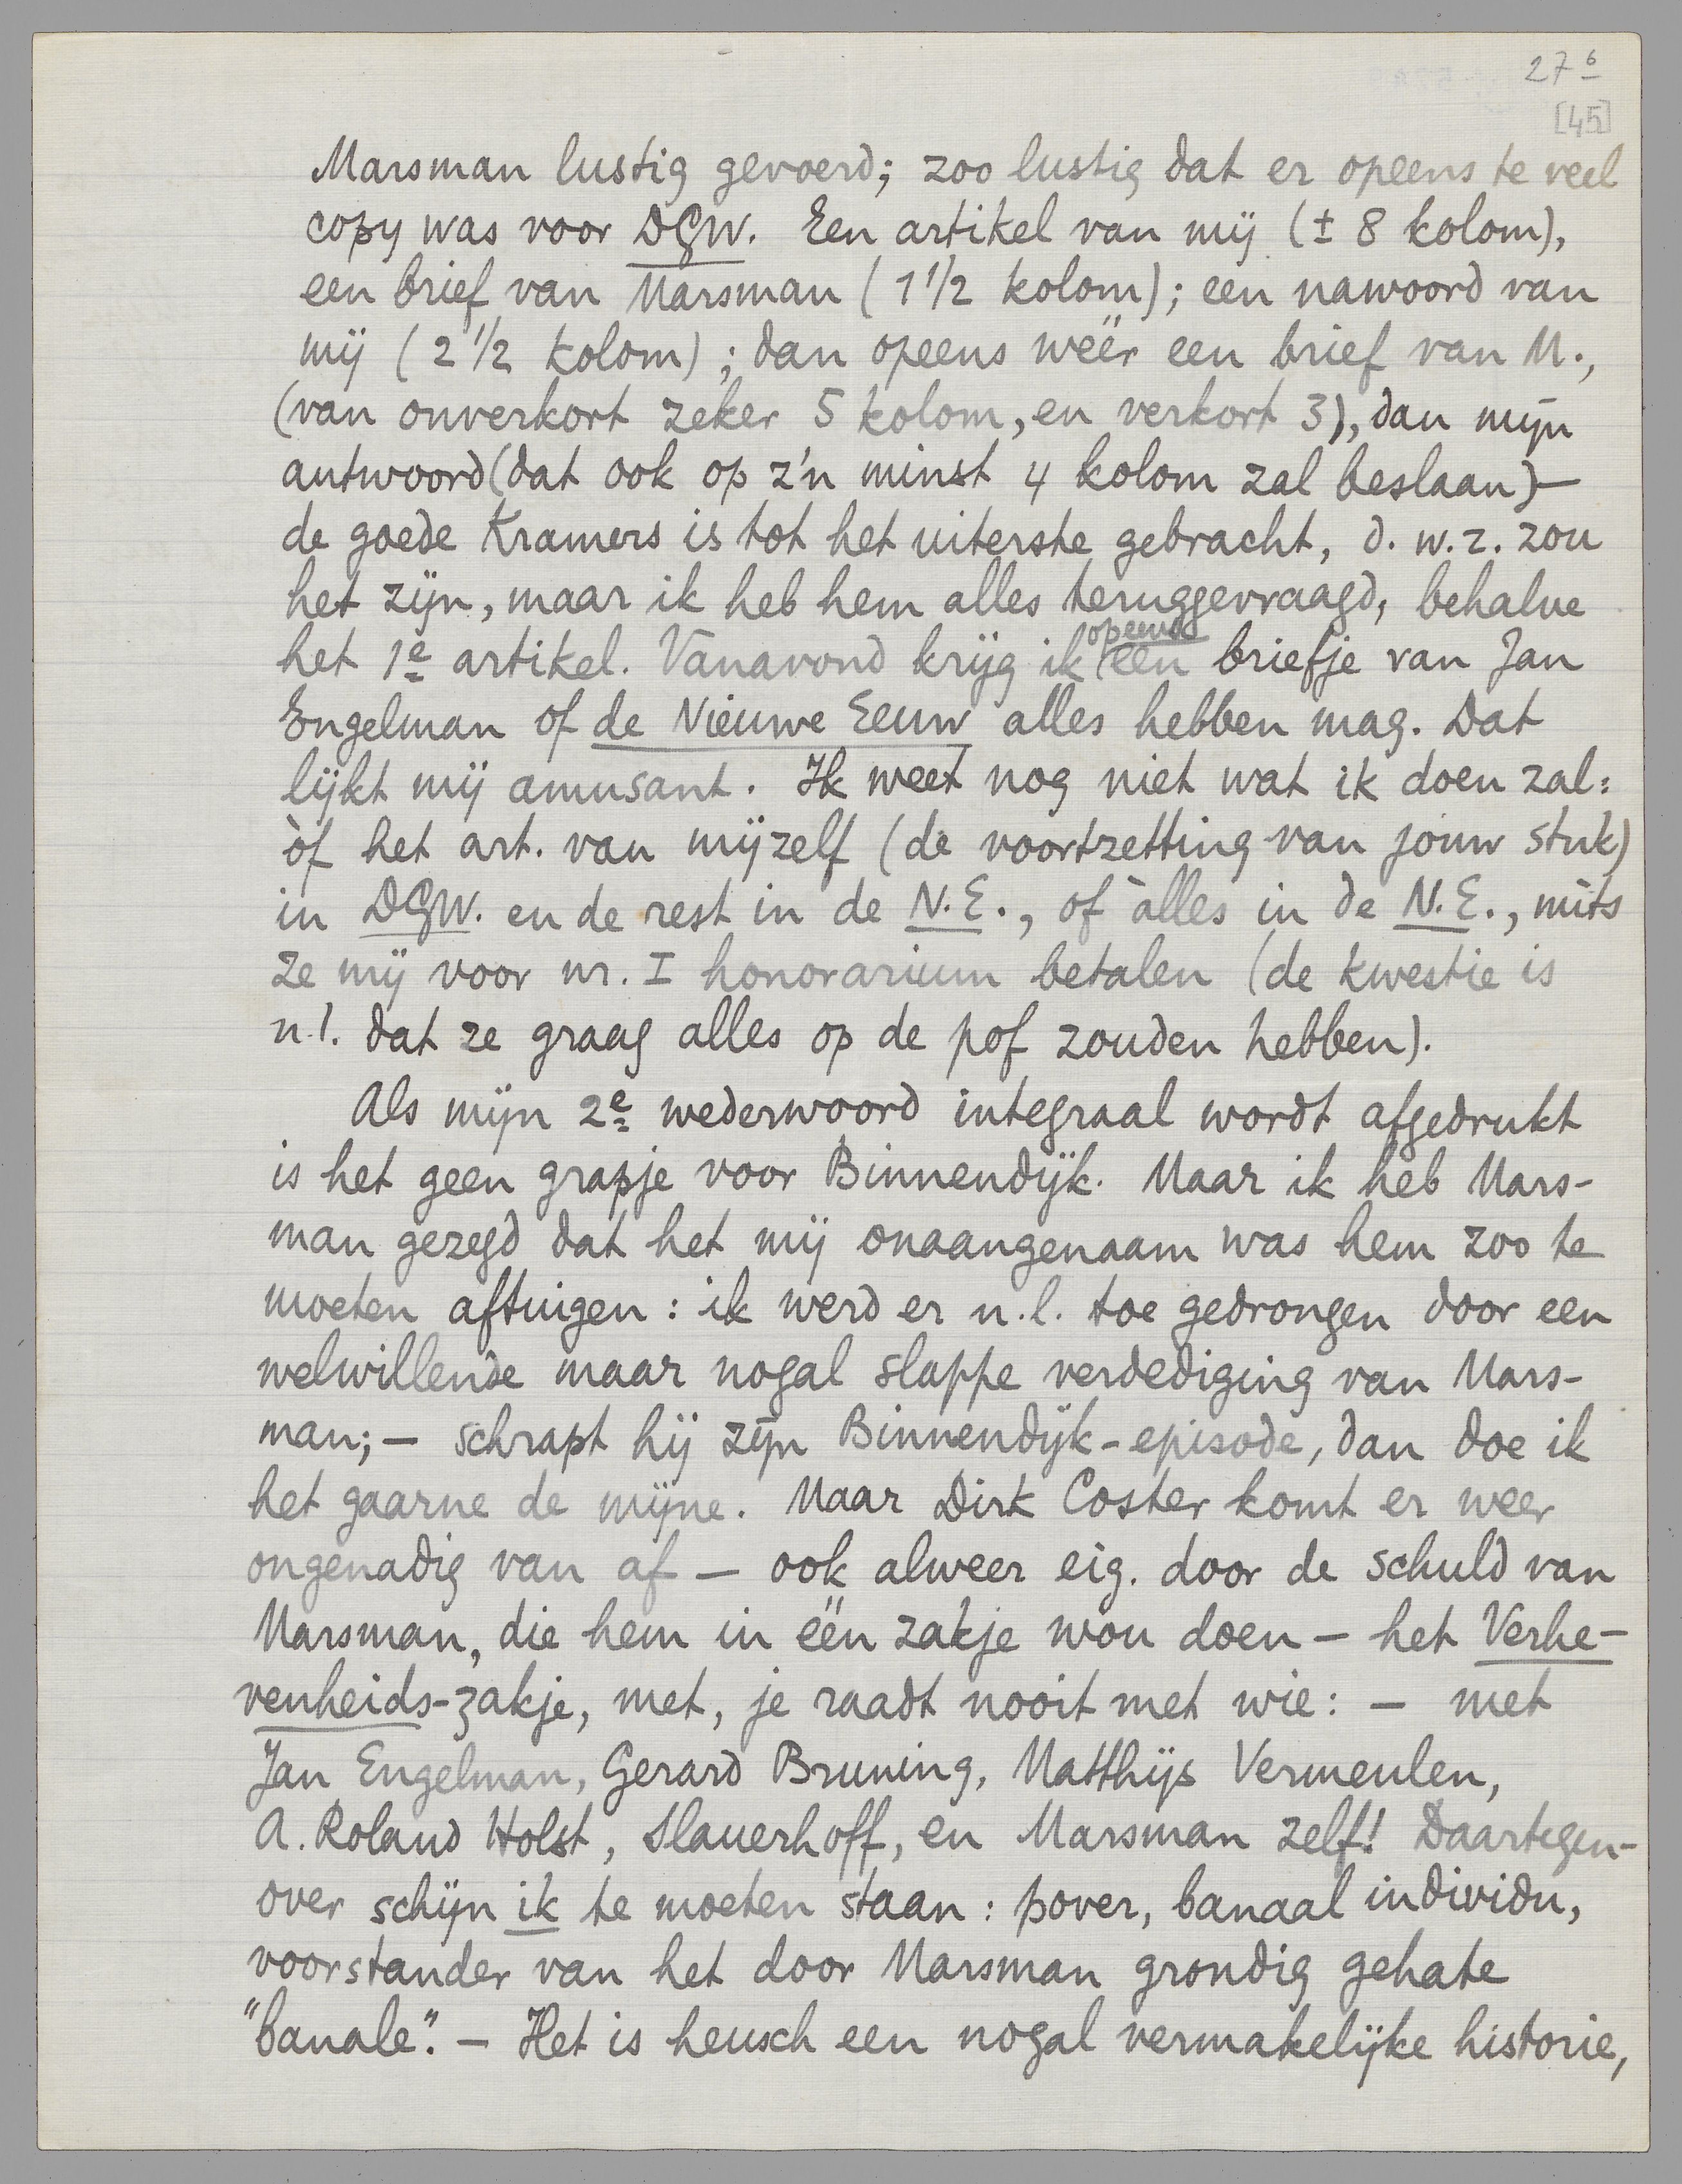 27 6
[45]
Marsman lustig gevoerd; zoo lustig dat er opeens te veel
copy was voor DGW. Een artikel van mij (± 8 kolom),
een brief van Marsman (1 1/2 kolom); een nawoord van
mij (2 1/2 kolom); dan opeens wéér een brief van M.,
(van onverkort zeker 5 kolom, en verkort 3), dan mijn
antwoord (dat ook op z'n minst 4 kolom zal beslaan) —
de goede Kramers is tot het uiterste gebracht, d. w. z. zou
het zijn, maar ik heb hem alles teruggevraagd, behalve
het 1e artikel. Vanavond krijg ik opeens een briefje van Jan
Engelman of de Nieuwe Eeuw alles hebben mag. Dat
lijkt mij amusant. Ik weet nog niet wat ik doen zal:
òf het art. van mijzelf (de voortzetting van jouw stuk)
in DGW. en de rest in de N.E., of àlles in de N.E., mits
ze mij voor nr. I honorarium betalen (de kwestie is
n.l. dat ze graag alles op de pof zouden hebben).
Als mijn 2e wederwoord integraal wordt afgedrukt
is het geen grapje voor Binnendijk. Maar ik heb Mars-
man gezegd dat het mij onaangenaam was hem zoo te
moeten aftuigen: ik werd er n.l. toe gedrongen door een
welwillende maar nogal slappe verdediging van Mars-
man; — schrapt hij zijn Binnendijk-episode, dan doe ik
het gaarne de mijne. Maar Dirk Coster komt er weer
ongenadig van af — ook alweer eig. door de schuld van
Marsman, die hem in één zakje wou doen — het Verhe-
venheids-zakje, met, je raadt nooit met wie: — met
Jan Engelman, Gerard Bruning, Matthijs Vermeulen,
A. Roland Holst, Slauerhoff, en Marsman zelf! Daartegen-
over schijn ik te moeten staan: pover, banaal individu,
voorstander van het door Marsman grondig gehate
"banale". — Het is heusch een nogal vermakelijke historie,